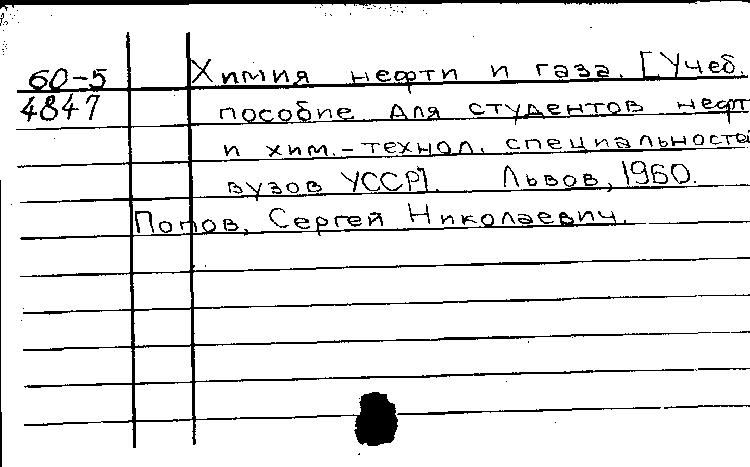 60-5 Химия нефти и газа. [Учеб.
4847 пособие для студентов нефт
и хим.-технол. специальностей
вузов УССР]. Львов, 1960.
Попов, Сергей Николаевич.